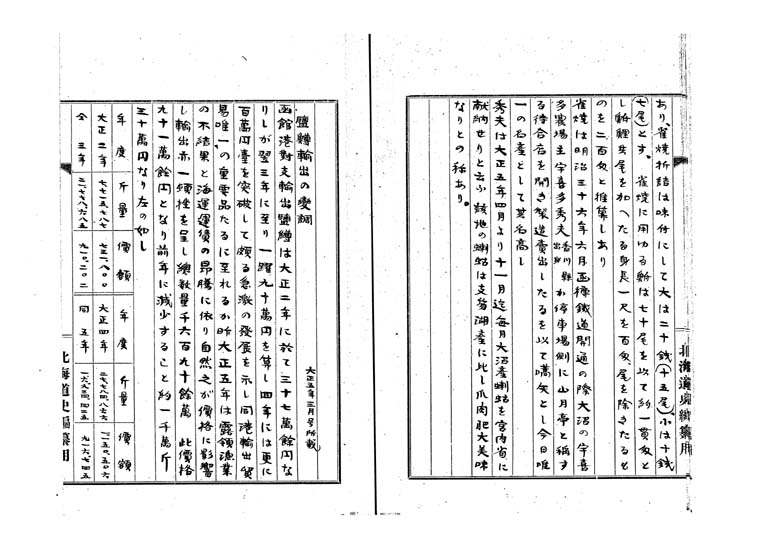 あり、雀燒折詰は味付にして大は二十銭(十五尾)、小は十銭
(七尾)とす。雀燒に用ゆる鮒は七十尾を以て約一貫匁と
し鮒鯉廿尾を加へたる身長一尺を百匁、尾を除きたるも
のを二百匁と推算しあり
雀燒は明治三十六年六月函樽鐵道開通の際大沼の宇喜
多農場主宇喜多秀夫出身香川縣か停車場側に山月亭と稱す
る待合店を開き製造賣出したるを以て嚆矢とし今日唯
一の名産として其名高し
秀夫は大正五年四月より十一月迄每月大沼産蝲蛄を宮内省に
献納せりと云ふ 該地の蝲蛄は支笏湖産に比し爪肉肥大美味
なりとの稱あり。
北海道史編纂用
大正五年三月号所載
鹽鱒輸出の變調
函館港對支輸出鹽鱒は大正二年に於て三十七萬餘円な
りしが翌三年に至り一躍九十萬円を算し四年には更に
百萬円臺を突破して頗る急激の發展を示し同港輸出貿
易唯一の重要品たるに至れるが昨大正五年は露領漁業
の不結果と海運運賃の昂騰に依り自然之が價格に影響
し輸出亦一頓挫を呈し總數量千六百九十餘萬 此價格
九十一萬餘円となり前年に減少すること約一千萬斤
三十萬円なり左の如し
年度 斤量 價額 年度 斤量 價額
大正二年 七七一五、七八七 七三一、八〇〇 大正四年
仝 三年 同 五年 九一六七四五
北海道史編纂用